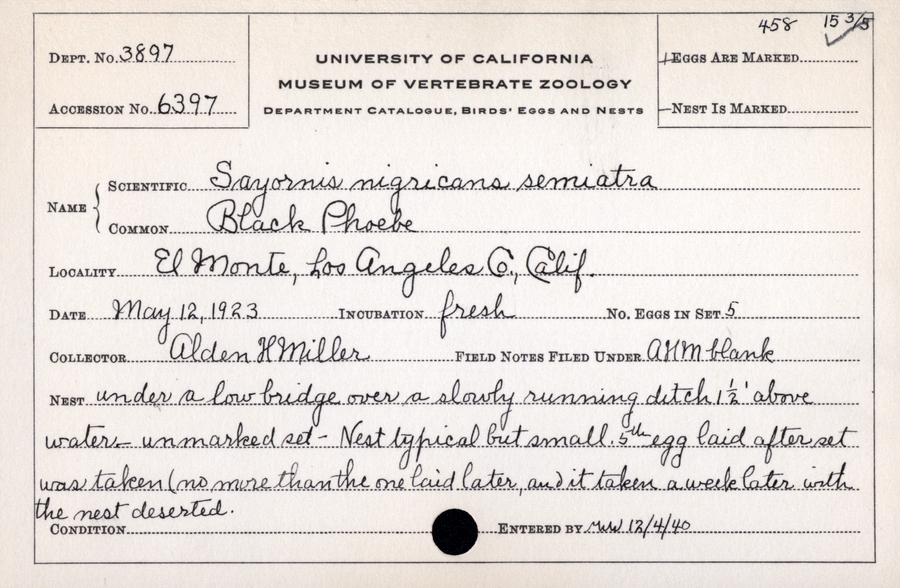 458 15 3/5
Dept. No. 3897
UNIVERSITY OF CALIFORNIA
Eggs Are Marked
MUSEUM OF VERTEBRATE ZOOLOGY
Accession No. 6397
Department Catalogue, Birds' Eggs and Nests
Nest Is Marked
Name
Scientific Sayornis nigricans semiatra
Common Black Phoebe
Locality El Monte, Los Angeles Co., Calif.
Date May 12, 1923 Incubation fresh No. Eggs in Set 5
Collector Alden H Miller Field Notes Filed Under AHM blank
Nest under a low bridge over a slowly running ditch 1½' above
water – unmarked set – Nest typical but small. 5th egg laid after set
was taken (no more than the one laid later, and it taken a week later with
the nest deserted.
Condition Entered by 12/4/40